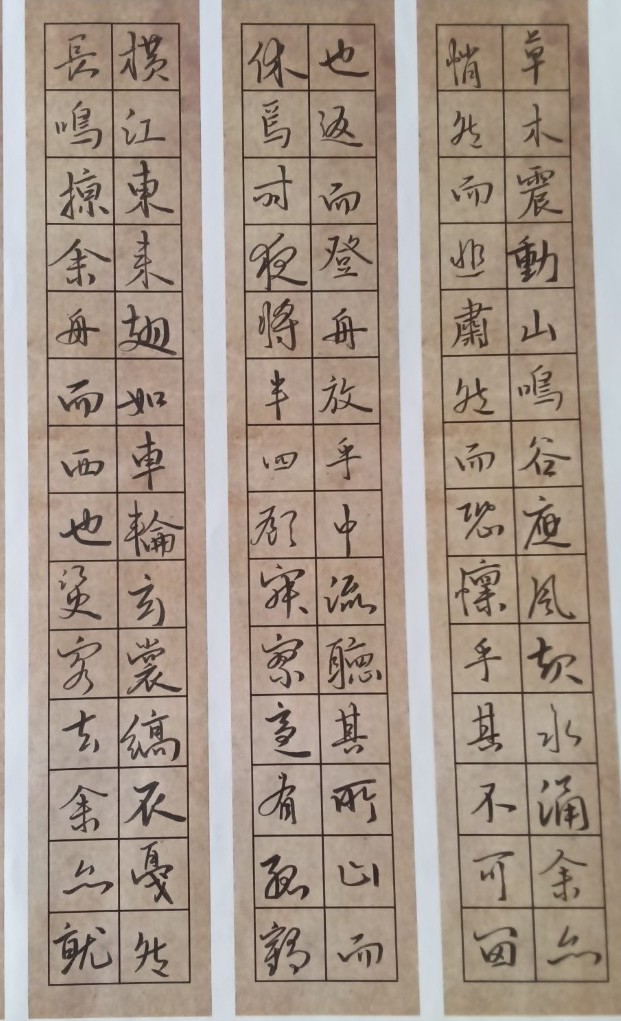 草木震動山鳴谷應風起水涌余亦
悄然而悲肅然而恐懍乎其不可留
也返而登舟放乎中流聽其所止而
休焉时夜將半四顧寂寥適有孤鶴
横江東来翅如車輪玄裳縞衣戛然
長鳴掠余舟而西也須臾客去余亦就